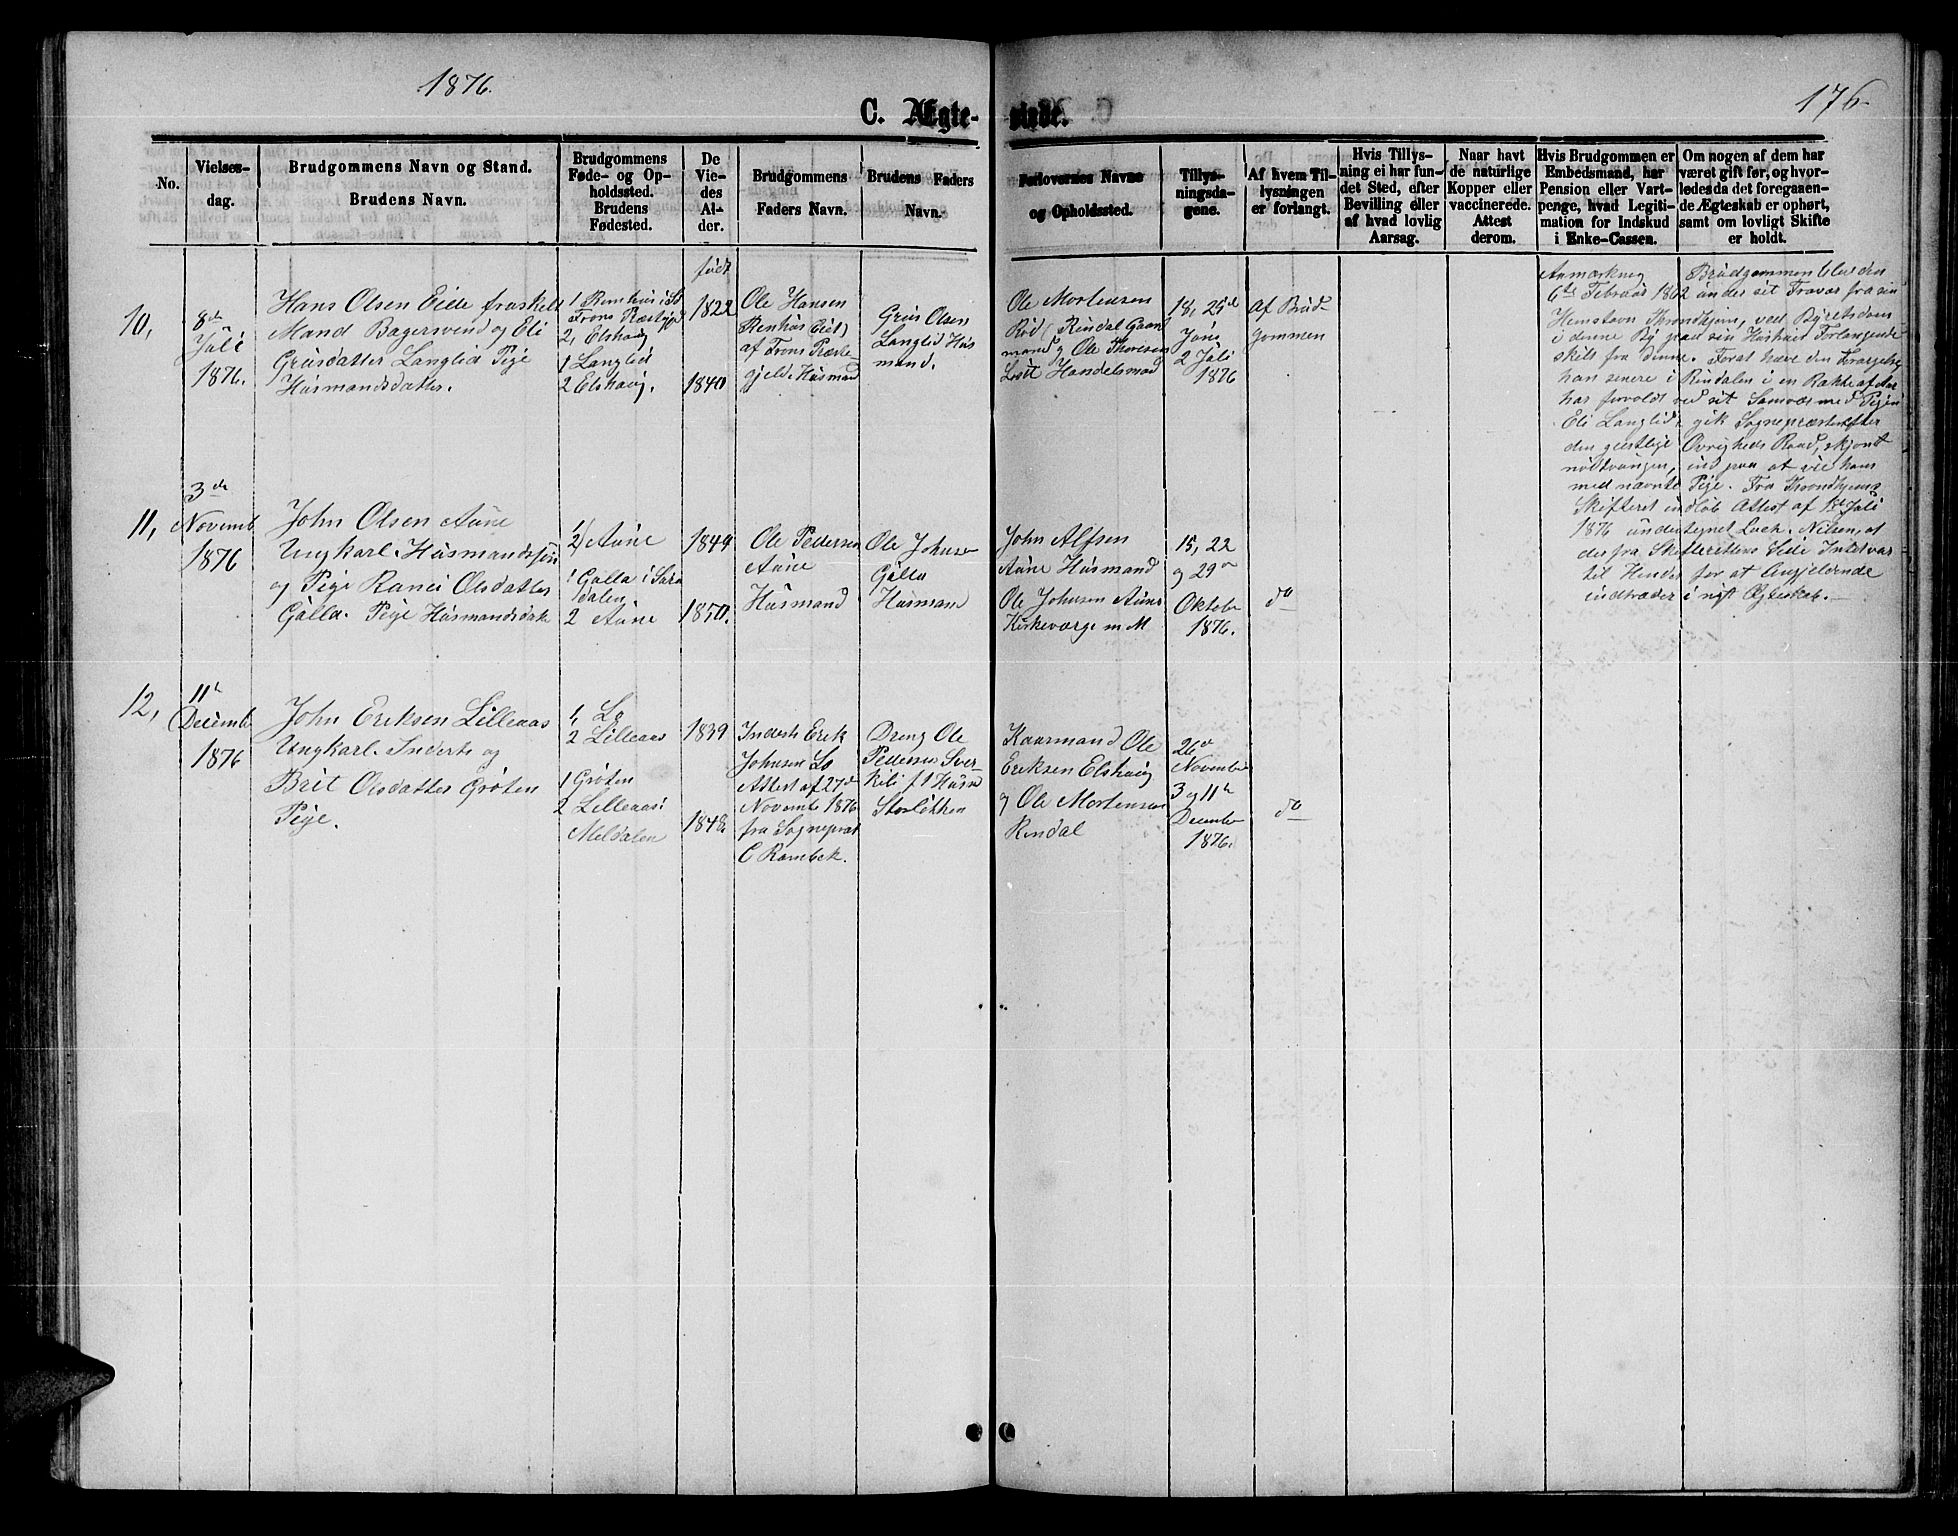 1876.
176.
C. Ægte-
viede.
No.
Vielses-
dag.
Brudgommens Navn og Stand.
Brudens Navn.
Brudgommens
Føde- og Op-
holdssted.
Brudens
Fødested.
De
Vie-
des
Al-
der.
Brudgommens
Faders Navn.
Brudens Faders
Navn.
Forlovernes Navne
og Opholdssted.
Tillys-
ningsda-
gene.
Af hvem Til-
lysningen
er forlangt.
Hvis Tillys-
ning ei har fun-
det Sted, efter
Bevilling eller
af hvad lovlig
Aarsag.
Naar havt
de naturlige
Kopper eller
vaccinerede.
Attest
derom.
Hvis Brudgommen er
Embedsmand, har
Pension eller Vart-
penge, hvad Legiti-
mation for Indskud
i Enke-Cassen.
Om nogen af dem har
været gift før, og hvor-
ledes da det foregaaen-
de Ægteskab er ophørt,
samt om lovligt Skifte
er holdt.
10,
8de
Juli
1876.
Hans Olsen Eide fraskilt
Mand Bagersvend og Eli
Gruisdatter Langlid Pige
Husmandsdatter.
1 Renhus i
Frons Præstgjd
2, Elshaug
1 Langlid
2 Elshaug.
født
1822
1840
Ole Hansen
Renhus Eiet
af Frons Præste-
gjeld. Husmand
Gruis Olsen
Langlid Hus
mand.
Ole Mortensen
Rød (Rindal Gaard
mand og Ole Thoresen
Løset Handelsmad
18, 25de
Juni
2 Juli
1876
Af Brud
gommen
Anmærkning Brudgommen blev den
6te Februar 1862 under sit Fravær fra sin
Hjemstavn Throndhjem, ved Byretsdom
i denne By paa sin Hustrues Forlangende
skilt fra denne. Forat hæve den Forargelse
han senere i Rindalen i en Række af Aar
har forvoldt ved sit Samvær med Pigen
Eli Langlid, gik Sognepræsten efter
den geistlige Øvrigheds Raad, skjønt
nødtvungen, ind paa at vie ham
med nævnte Pige. Fra Throndhjems
Skifteret indløb Attest af 1ste Juli
1876 undertegnet Lock. Nilsen, at
der fra Skifterettens Side Intet var
til Hinder for at Angjeldende
indtræder i nyt Ægteskab.
11,
3de
Novemb
1876
John Olsen Aune
Ungkarl. Husmandssøn
og Pige Ranei Olsdatter
Gulla. Pige Husmandsdate
1/
2/ Aune
1 Gulla i Sura
dalen
2 Aune
1849
1850.
Ole Pedersen
Aune
Husmand
Ole Johnse
Gulla
Husmand
John Alfsen
Aune Husmand
Ole Johnsen Aune
Kirkeværge m M
15, 22
og 29de
Oktober
1876.
do
12,
11te
Decemb
1876
John Eriksen Lilleaas
Ungkarl. Inderst og
Brit Olsdatter Grøten
Pige.
1, Lo
2 Lilleaas
1 Grøten
2 Lilleaas i
Meldalen
1839
1848.
Inderst Erik
Johnsen Lo
Attest af 27de
Novemb 1876
fra Sognepræst
C Rambek.
Dreng Ole
Pedersen Sver-
kili f t Husmd
Storløkken
Kaarmand Ole
Eriksen Elshaug
og Ole Mortensen
Rindal
26de
Novembe
3 og 11te
December
1876.
do